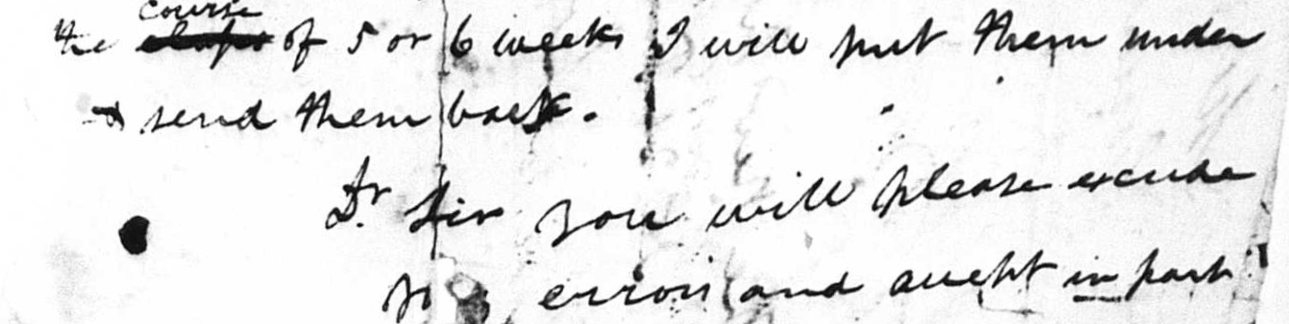 the course of 5 or 6 weeks I will put them under
& send them back.
Dr Sir you will please excuse
errors and in part